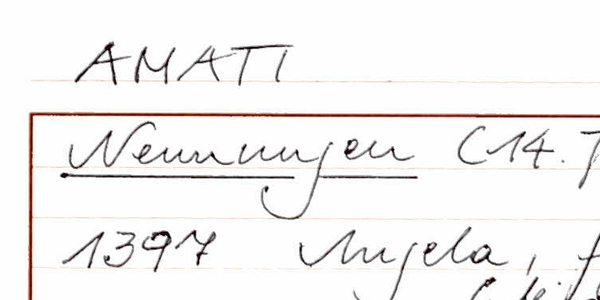 AMATI
Nennungen (14.
1397 Angela,